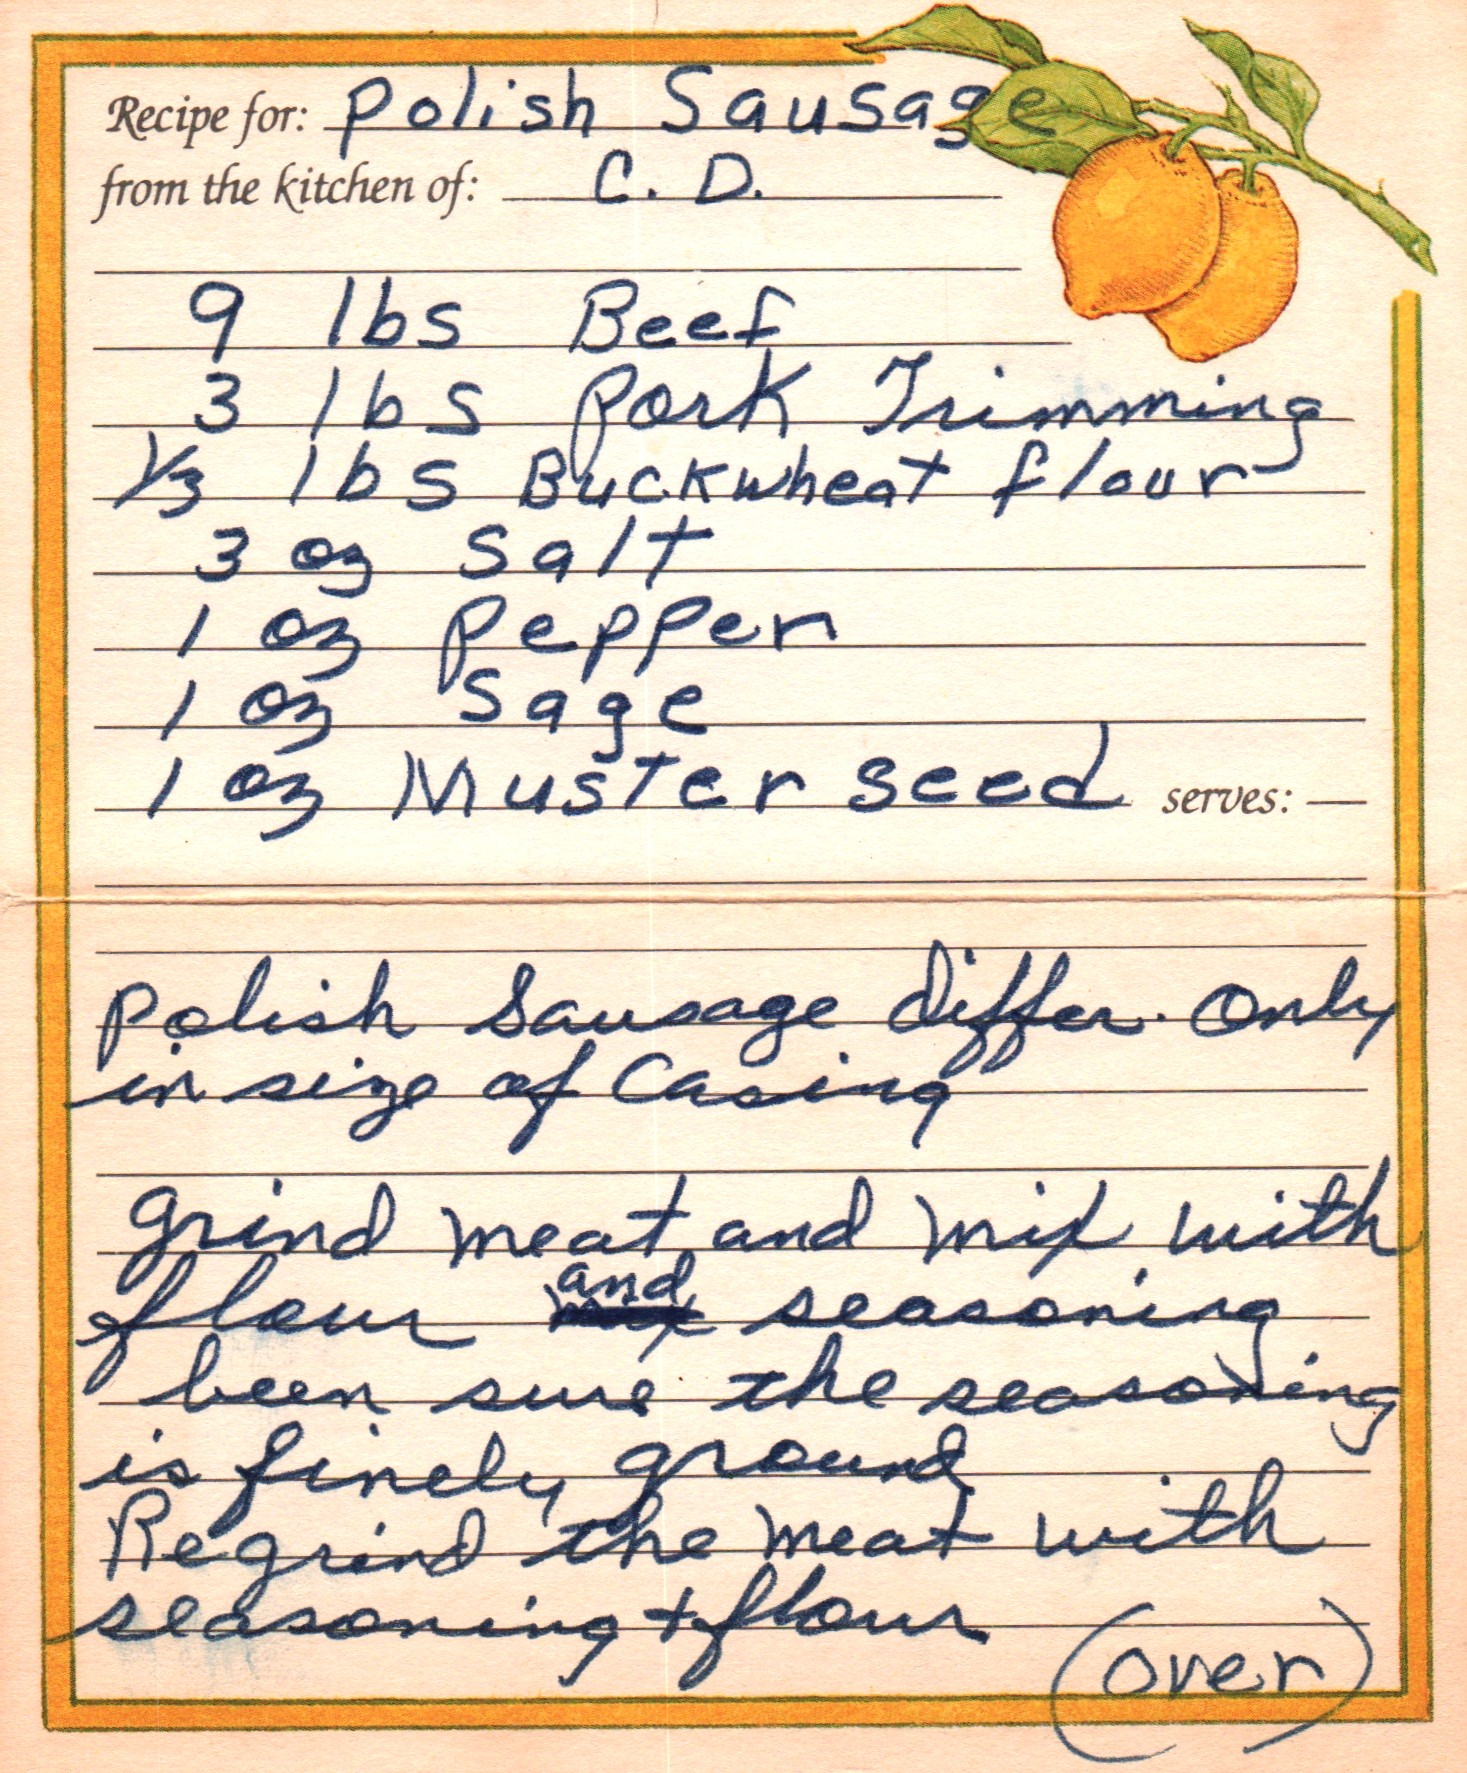 Recipe for: Polish Sausage
from the kitchen of: C. D.
9 lbs Beef
3 lbs Pork Trimming
1/3 lbs Buckwheat flour
3 oz Salt
1 oz Pepper
1 oz Sage
1 oz Muster seed serves:
Polish Sausage differ. Only
in size of Casing
grind meat and mix with
flour and seasoning
been sure the seasoning
is finely ground
Regrind the meat with
seasoning + flour
(over)